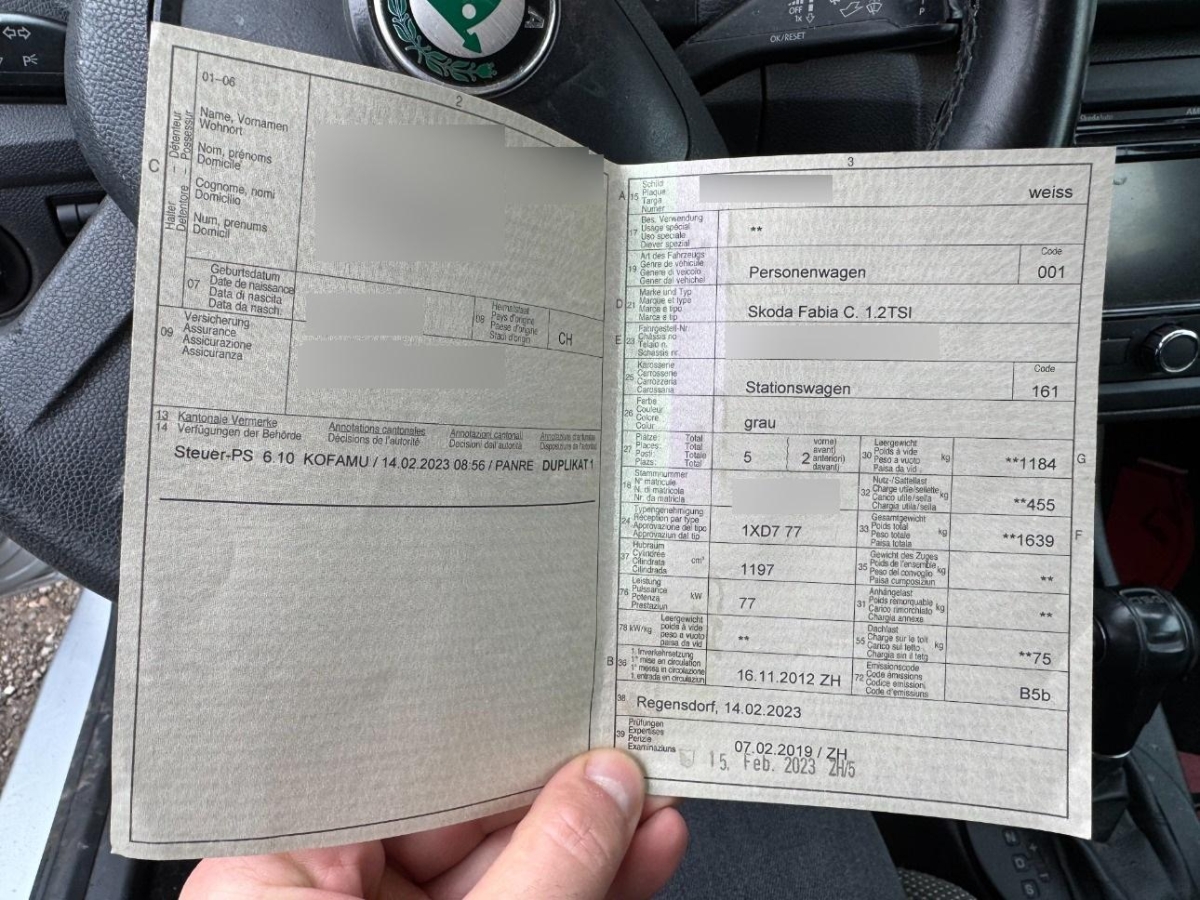 OFF
1x
OK/RESET
P
A
2
01–06
Name, Vornamen
Wohnort
Nom, prénoms
Domicile
Cognome, nomi
Domicilio
Num, prenums
Domicil
C
Halter – Détenteur
Detentore – Possessur
07
Geburtsdatum
Date de naissance
Data di nascita
Data da nasch.
08
Heimatstaat
Pays d'origine
Paese d'origine
Stadi d'origin
CH
09
Versicherung
Assurance
Assicurazione
Assicuranza
13 Kantonale Vermerke
14 Verfügungen der Behörde
Annotations cantonales
Décisions de l'autorité
Annotazioni cantonali
Decisioni dell'autorità
Steuer-PS 6.10 KOFAMU / 14.02.2023 08:56 / PANRE DUPLIKAT1
3
A 15
Schild
Plaque
Targa
Numer
weiss
17
Bes. Verwendung
Usage spécial
Uso speciale
Diever spezial
**
19
Art des Fahrzeugs
Genre de véhicule
Genere di veicolo
Gener dal vehichel
Personenwagen
Code
001
D 21
Marke und Typ
Marque et type
Marca e tipo
Marca e tip
Skoda Fabia C. 1.2TSI
E 23
Fahrgestell-Nr.
Châssis no
Telaio n.
Schassis nr.
25
Karosserie
Carrosserie
Carrozzeria
Carossaria
Stationswagen
Code
161
26
Farbe
Couleur
Colore
Colur
grau
27
Plätze: Total
Places: Total
Posti: Totale
Plazs: Total
5
2
vorne)
avant)
anteriori)
davant)
30
Leergewicht
Poids à vide
Peso a vuoto
Paisa da vid
kg
**1184
G
18
Stammnummer
N° matricule
N. di matricola
Nr. da matricla
32
Nutz-/Sattellast
Charge utile/sellette
Carico utile/sella
Chargia utila/sella
kg
**455
24
Typengenehmigung
Réception par type
Approvazione del tipo
Approvaziun dal tip
1XD7 77
33
Gesamtgewicht
Poids total
Peso totale
Paisa totala
kg
**1639
F
37
Hubraum
Cylindrée
Cilindrata
Cilindrada
cm³
1197
35
Gewicht des Zuges
Poids de l'ensemble
Peso del convoglio
Paisa cumposiziun
kg
**
76
Leistung
Puissance
Potenza
Prestaziun
kW
77
31
Anhängelast
Poids remorquable
Carico rimorchiato
Chargia annexa
kg
**
78 kW/kg
Leergewicht
poids à vide
peso a vuoto
paisa da vid
**
55
Dachlast
Charge sur le toit
Carico sul tetto
Chargia sin il tetg
kg
**75
B 36
1. Inverkehrsetzung
1re mise en circulation
1a messa in circolazione
1. entrada en circulaziun
16.11.2012 ZH
72
Emissionscode
Code émissions
Codice emissioni
Code d'emissiuns
B5b
38
Regensdorf, 14.02.2023
39
Prüfungen
Expertises
Perizie
Examinaziuns
07.02.2019 / ZH
15. Feb. 2023 ZH/5